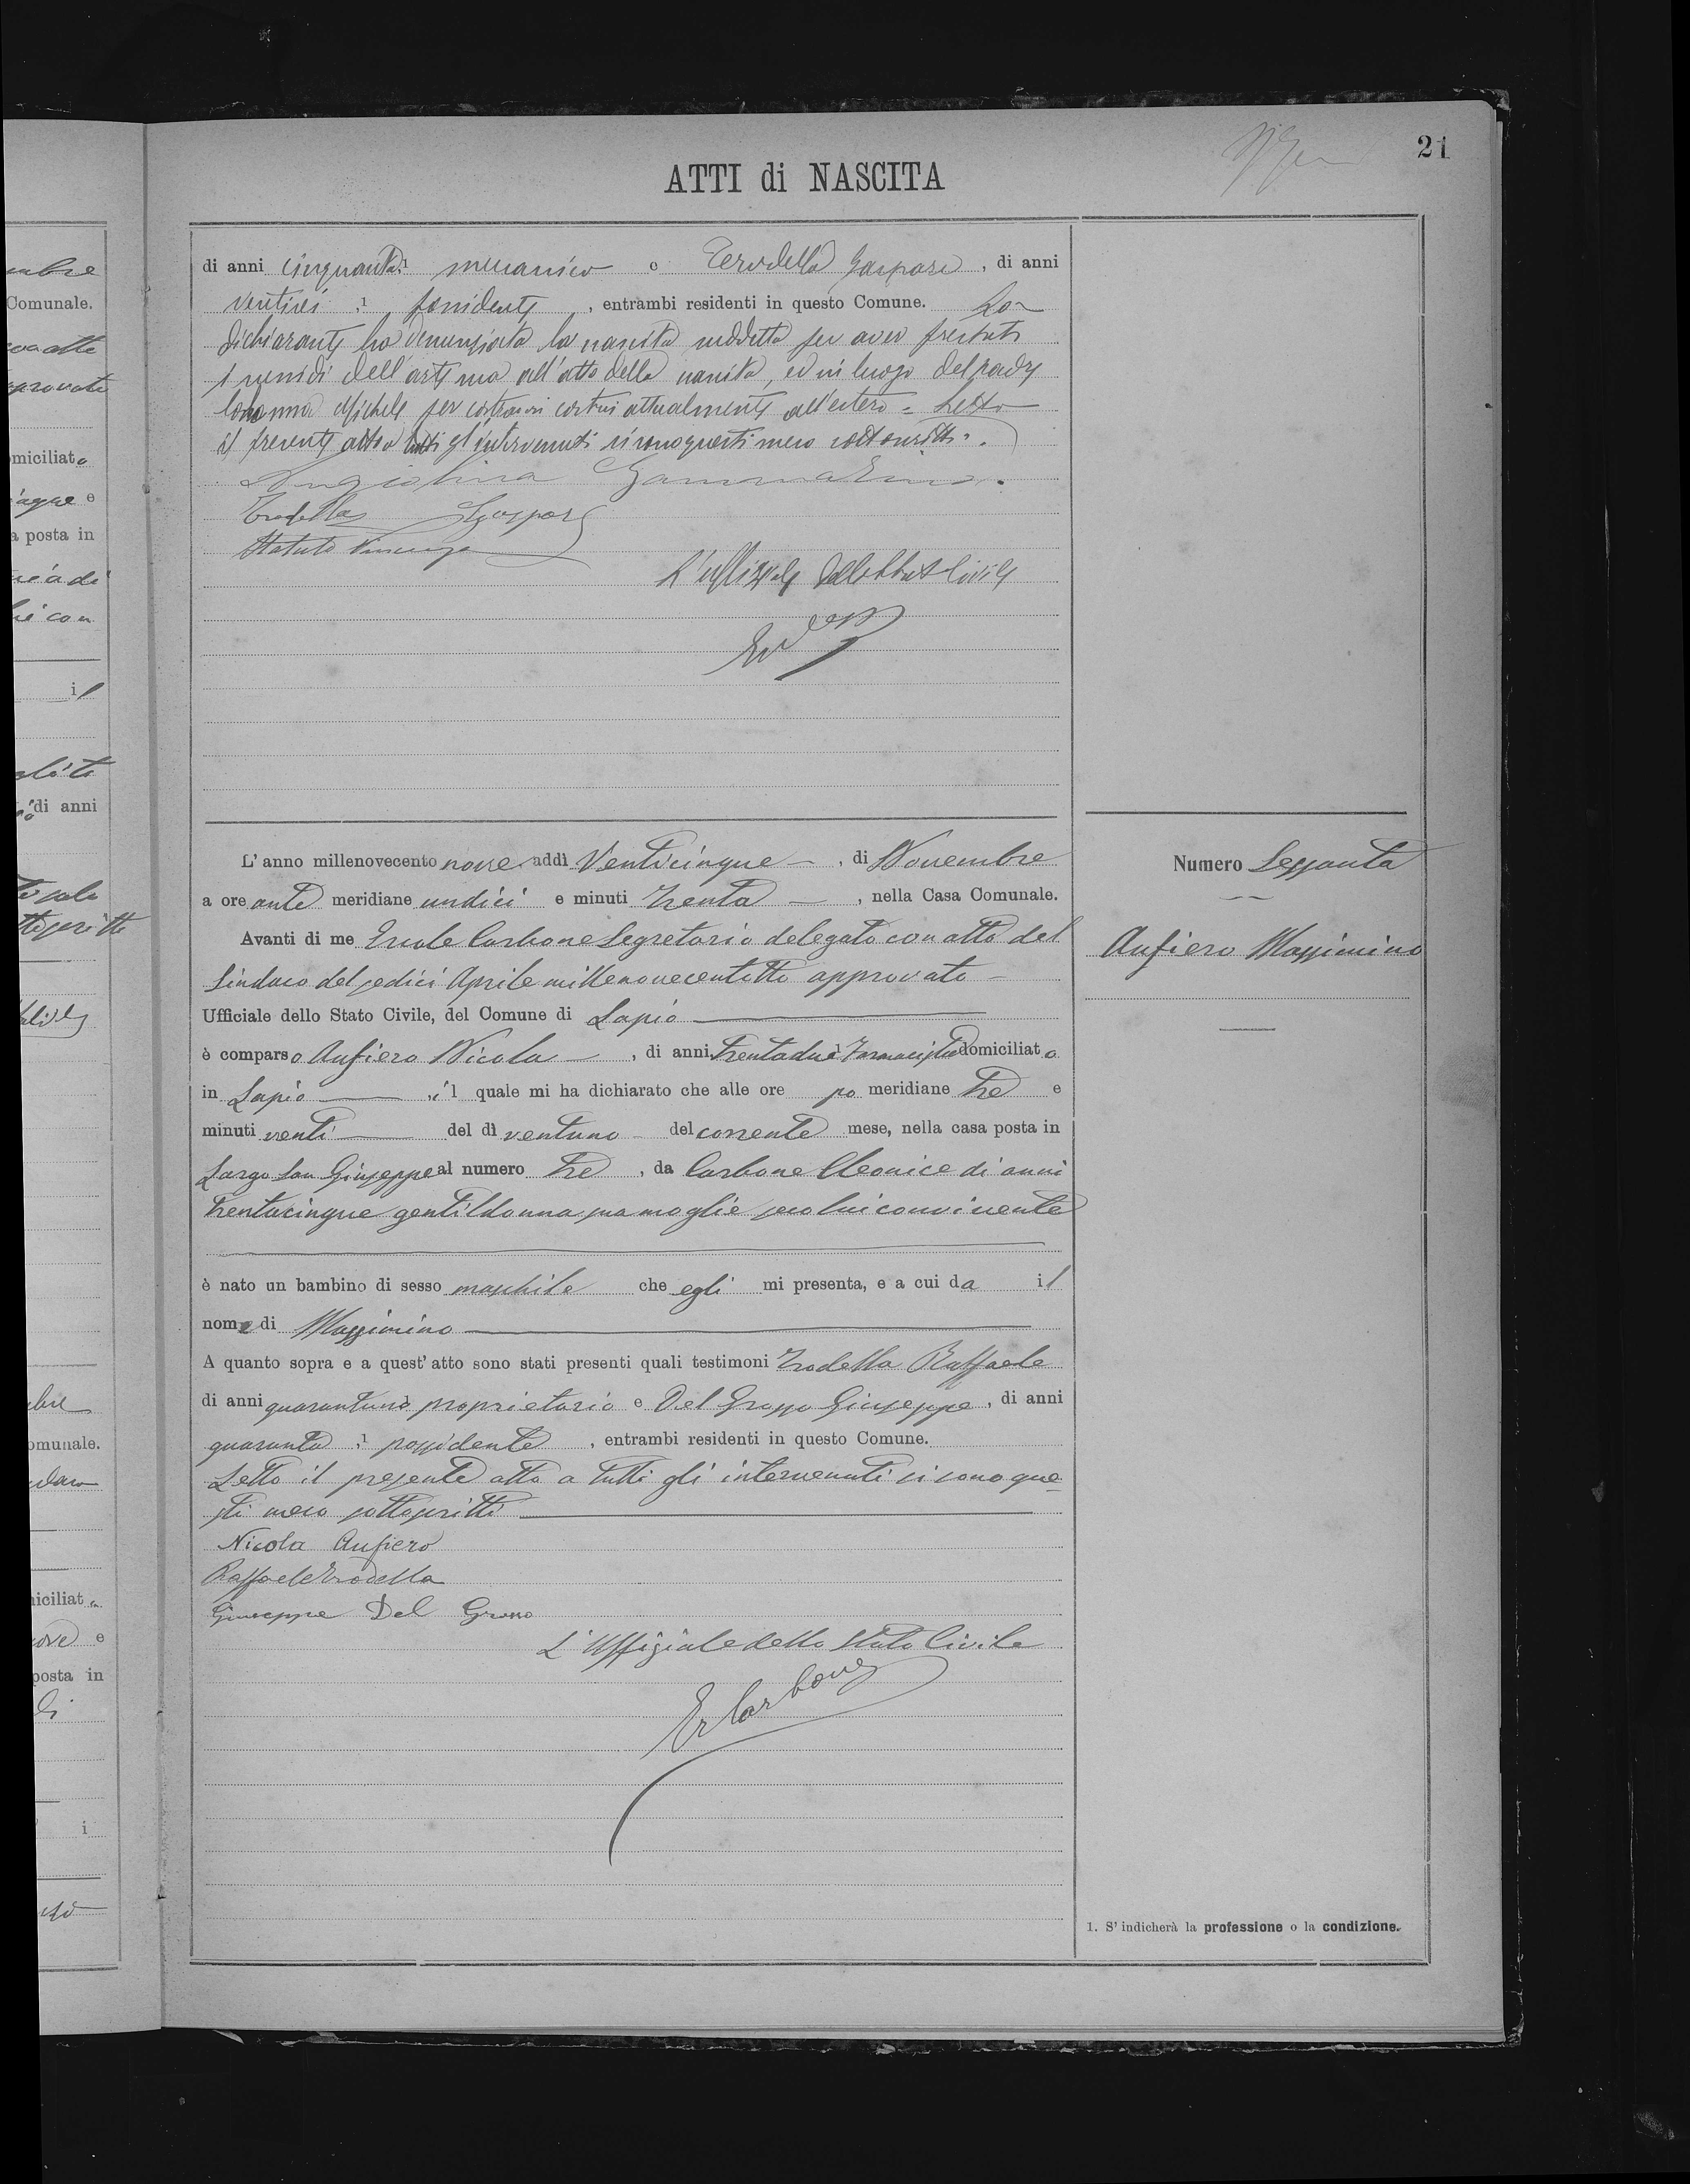 21
ATTI di NASCITA
di anni cinquanta meccanico e Gaspare, di anni
ventisei possidente, entrambi residenti in questo Comune. La
dichiarante ha denunziata la nascita suddetta per aver prestati
i sussidi dell'arte sua all'atto della nascita, ed in luogo del padre
Michele per costui attualmente all'estero = Letto
il presente atto a tutti gl'intervenuti si sono questi meco sottoscritti.
Angiolina
Trodella Gaspare
Statuto Vincenzo
L'uffiziale dello Stato Civile
L'anno millenovecento nove addì Venticinque, di Novembre
a ore ante meridiane undici e minuti trenta, nella Casa Comunale.
Numero Sessanta
Avanti di me Ercole Carbone Segretario delegato con atto del
Sindaco del sedici Aprile millenovecentotto approvato
Aufiero Massimino
Ufficiale dello Stato Civile, del Comune di Lapio
è comparso Aufiero Nicola, di anni trentadue 1 Farmacista domiciliato
in Lapio il quale mi ha dichiarato che alle ore po meridiane tre e
minuti venti del dì ventuno del corrente mese, nella casa posta in
Largo San Giuseppe al numero tre, da Carbone Cleonice di anni
trentacinque gentildonna sua moglie seco lui convivente
è nato un bambino di sesso maschile che egli mi presenta, e a cui da il
nome di Massimino
A quanto sopra e a quest'atto sono stati presenti quali testimoni Trodella Raffaele
di anni quarantuno proprietario e Del Grosso Giuseppe, di anni
quaranta 1 possidente, entrambi residenti in questo Comune.
Letto il presente atto a tutti gli intervenuti si sono que-
sti meco sottoscritti
Nicola Aufiero
Raffaele Trodella
Giuseppe Del Grosso
L'Uffiziale dello Stato Civile
Er Carbone
1. S'indicherà la professione o la condizione.